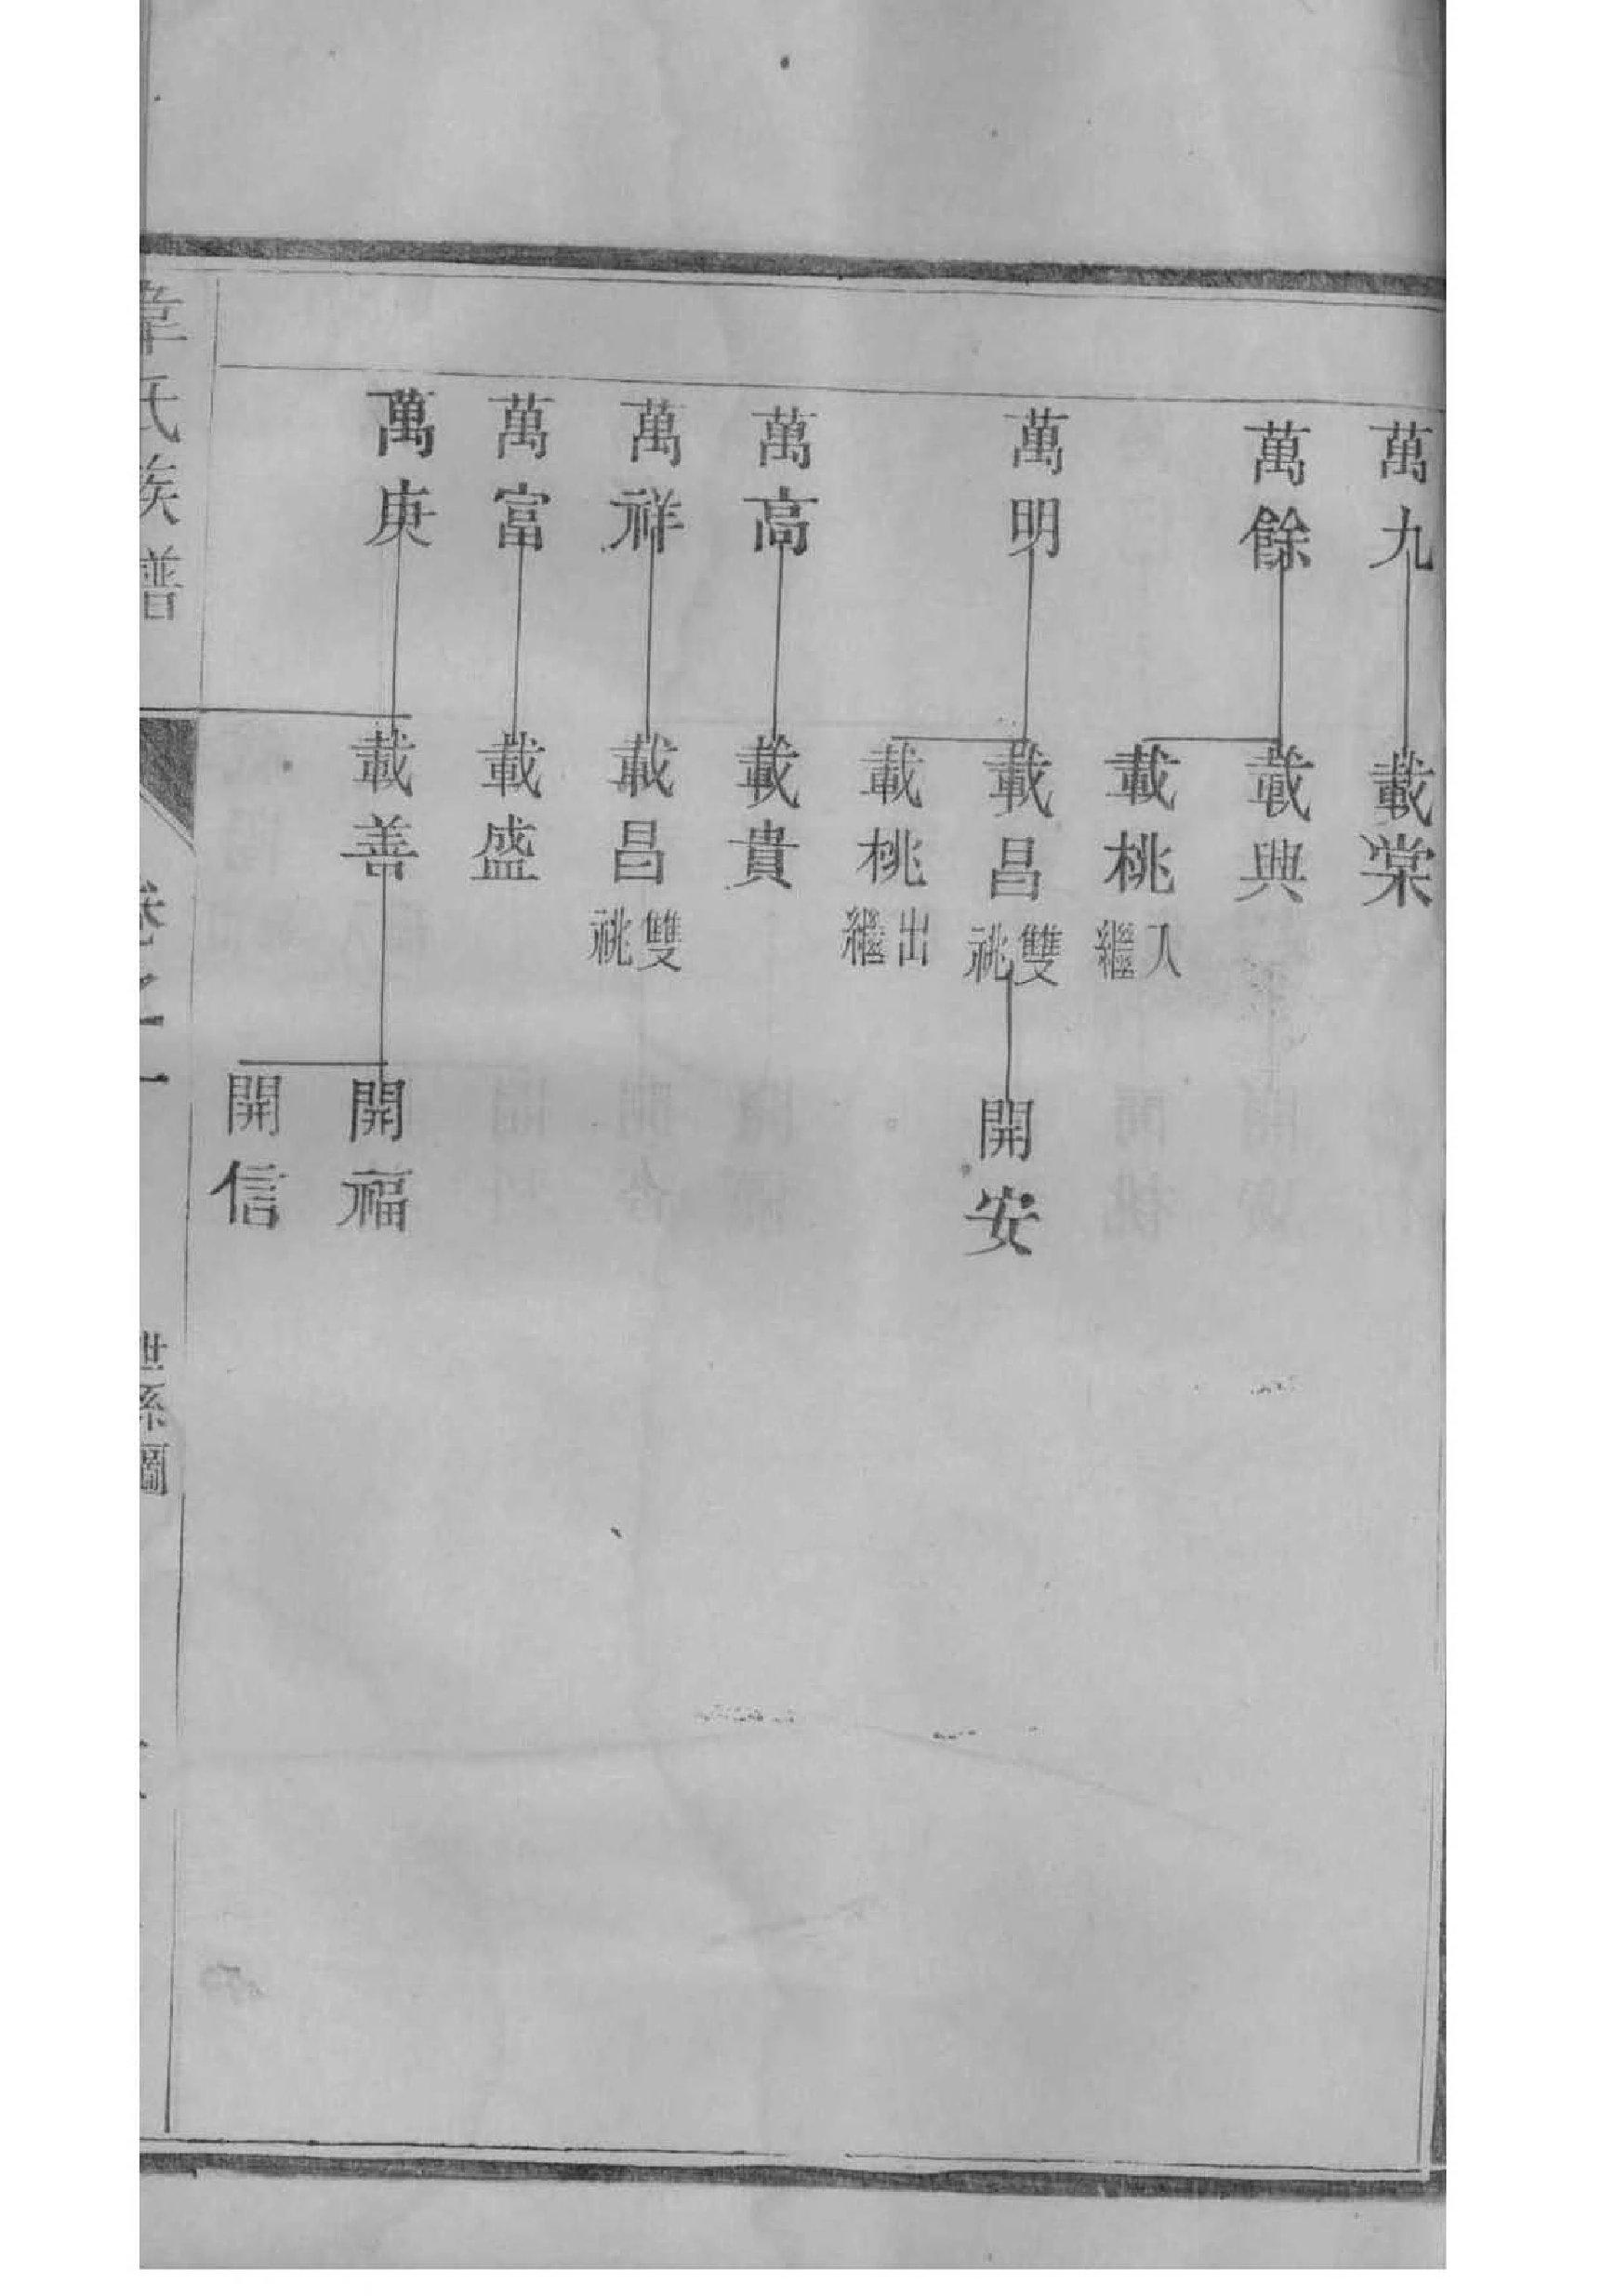 萬九
載棠
萬餘
載興
載桃
入繼
萬明
載昌
雙祧
開安
載桃
出繼
萬高
載貴
萬祥
載昌
雙祧
萬富
載盛
萬庚
載善
開福
開信
韋氏族譜
卷之一
世系圖